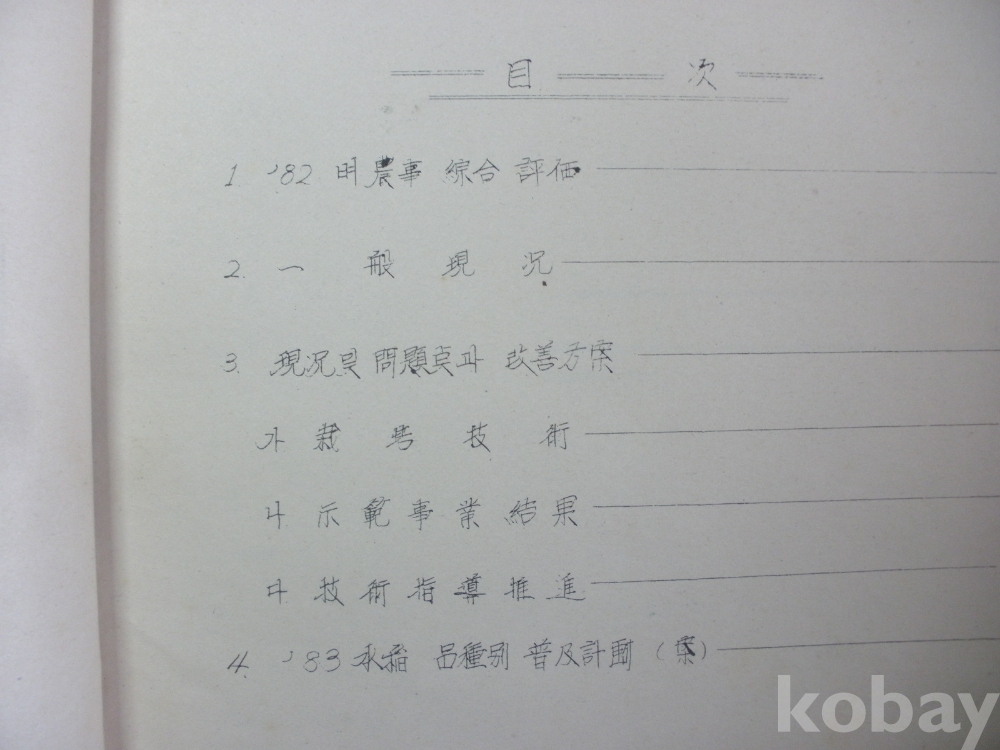 目 次
1 '82 田農事 綜合 評価
2. 一 般 現 況
3. 現况 및 問題点과 改善方案
가 栽 培 技 術
나 示 範 事 業 結 果
다 技 術 指 導 推 進
4. '83 水稲 品種別 普及計劃 (案)
kobay